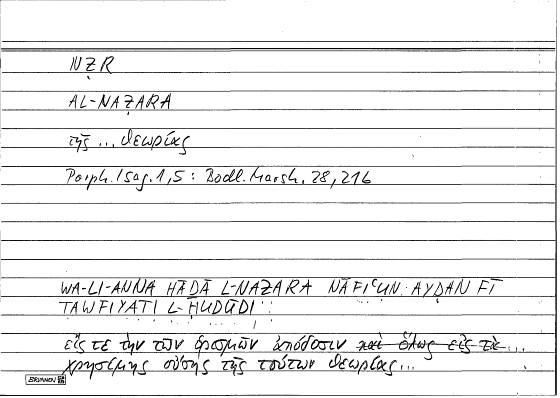 NẒR
AL-NAẒARA
τῆς ... θεωρίας
Porph. Isag. 1,5 : Bodl. Marsh. 28, 216
WA-LI-ANNA HĀḎĀ L-NAẒARA NĀFIʿUN AYḌAN FĪ
TAWFIYATI L-ḤUDŪDI
εἴς τε τὴν τῶν ὁρισμῶν ἀπόδοσιν καὶ ὅλως εἰς τὰ ...
χρησίμης οὔσης τῆς τούτων θεωρίας ...
BRUNNEN